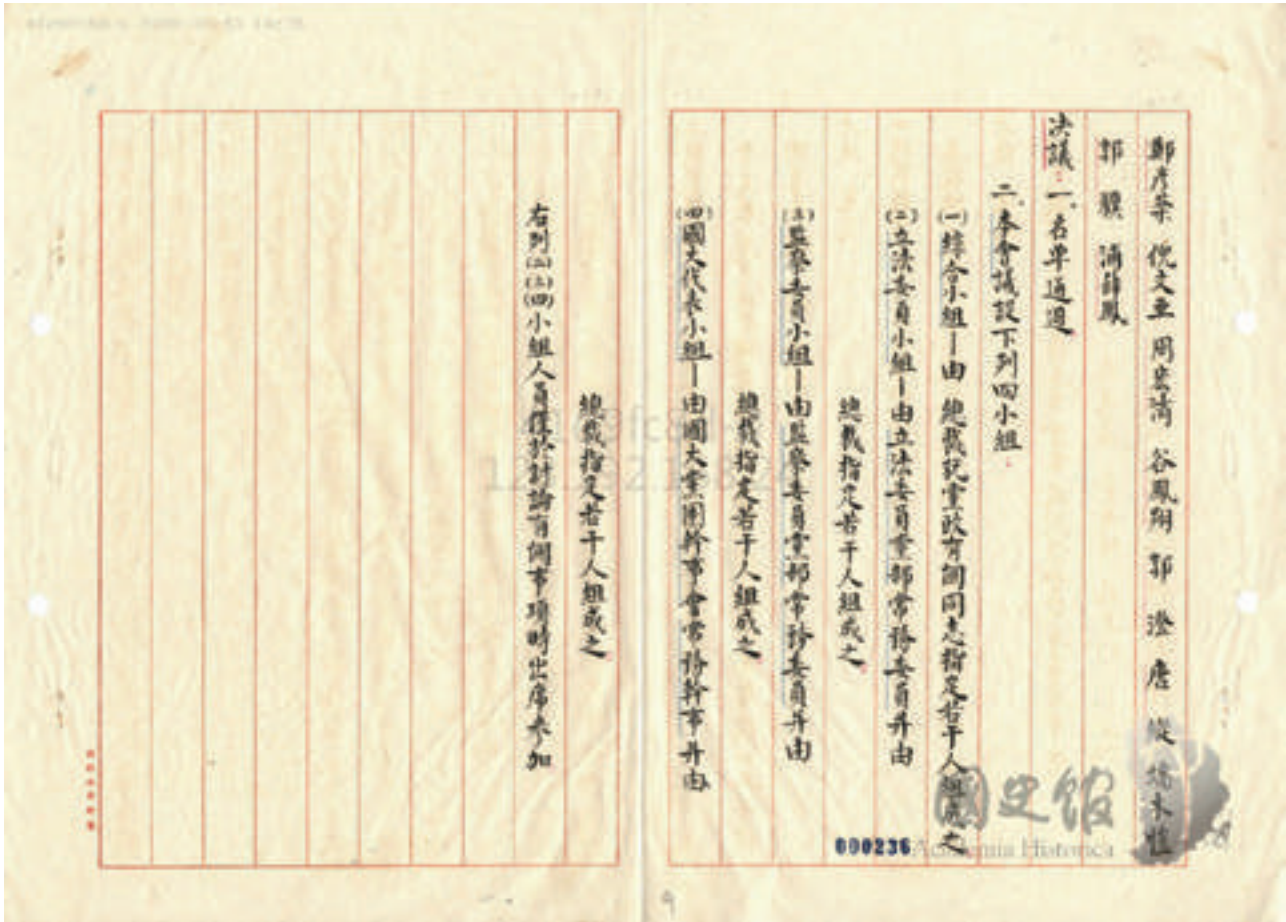 鄭彥棻 倪文亞 周宏濤 谷鳳翔 郭 澄 唐 縱 端木愷
郭 驥 浦薛鳳
決議：一、名單通過
二、本會議設下列四小組：
(一)綜合小組—由 總裁就黨政有關同志指定若干人組成之
(二)立法委員小組—由立法委員黨部常務委員并由
總裁指定若干人組成之
(三)監察委員小組—由監察委員黨部常務委員并由
總裁指定若干人組成之
(四)國大代表小組—由國大黨團幹事會常務幹事并由
總裁指定若干人組成之
右列(二)(三)(四)小組人員僅於討論有關事項時出席參加
國史館
Academia Historica
000236
9